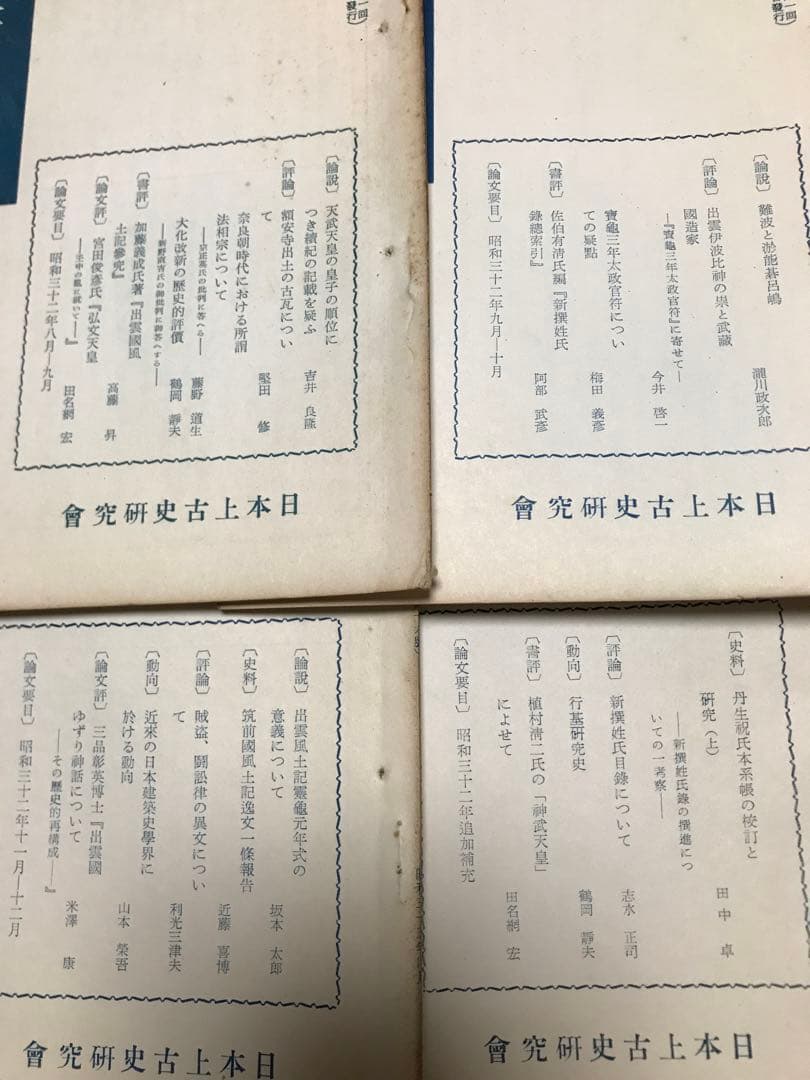 一回
發行)
〔論說〕 天武天皇の皇子の順位に
つき續紀の記載を疑ふ 吉井 良隆
〔評論〕 額安寺出土の古瓦につい
て 堅田 修
奈良朝時代における所謂
法相宗について
藤野 道生
大化改新の歷史的評價
鶴岡 靜夫
〔書評〕 加藤義成氏著『出雲國風
土記參究』 高藤 昇
〔論文評〕 宮田俊彥氏『弘文天皇
』 田名網 宏
〔論文要目〕 昭和三十二年八月―九月
日本上古史研究會
一回
發行)
〔論說〕 難波と淤能碁呂嶋 瀧川政次郎
〔評論〕 出雲伊波比神の祟と武藏
國造家
―『寶龜三年太政官符』に寄せて―
今井 啓一
寶龜三年太政官符につい
ての疑點 梅田 義彥
〔書評〕 佐伯有淸氏編『新撰姓氏
錄總索引』 阿部 武彥
〔論文要目〕 昭和三十二年九月―十月
日本上古史研究會
〔論說〕 出雲風土記靈龜元年式の
意義について 坂本 太郎
〔史料〕 筑前國風土記逸文一條報告
近藤 喜博
〔評論〕 賊盜、鬪訟律の異文につい
て 利光三津夫
〔動向〕 近來の日本建築史學界に
於ける動向 山本 榮吾
〔論文評〕 三品彰英博士『出雲國
ゆずり神話について
―その歷史的再構成―』
米澤 康
〔論文要目〕 昭和三十二年十一月―十二月
日本上古史研究會
〔史料〕 丹生祝氏本系帳の校訂と
硏究(上) 田中 卓
―新撰姓氏錄の撰進につ
いての一考察―
〔評論〕 新撰姓氏目錄について
志水 正司
〔動向〕 行基硏究史 鶴岡 靜夫
〔書評〕 植村淸二氏の「神武天皇」
によせて 田名網 宏
〔論文要目〕 昭和三十二年追加補充
日本上古史研究會